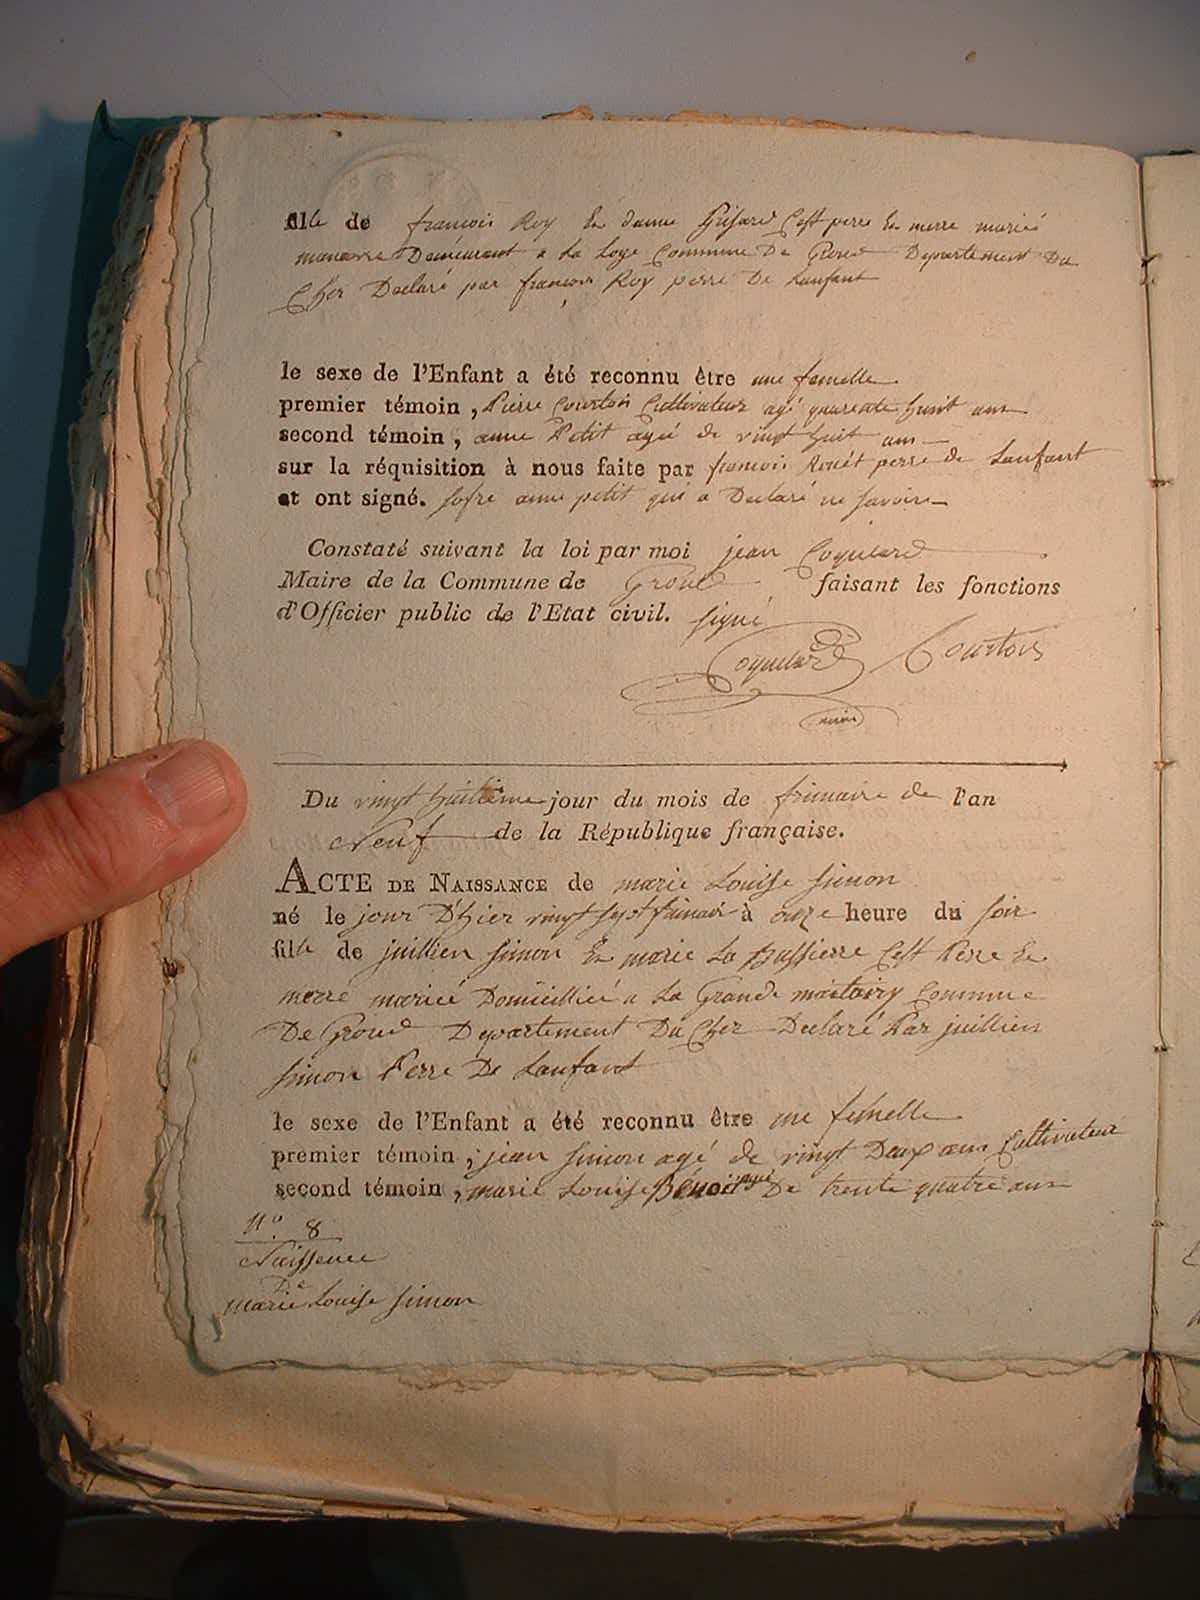 fille de francois Roy Et anne Grisard C'est perre Et merre marieé
manoeuvre Demeurant a La Loge Commune De Groue Departement Du
Cher Declaré par francois Roy perre De Lanfant
le sexe de l'Enfant a été reconnu être une femelle
premier témoin, Pierre Courtois Cultivateur agé quarente huit ans
second témoin, anne Petit ageé de vingt huit ans
sur la réquisition à nous faite par francois perre de Lanfant
et ont signé. anne petit qui a Declaré ne savoire
Constaté suivant la loi par moi jean Coquelard
Maire de la Commune de Groue faisant les fonctions
d'Officier public de l'Etat civil. signé
Coquelard Courtois
maire
Du vingt huitieme jour du mois de frimaire de l'an
Neuf de la République française.
ACTE DE NAISSANCE de marie Louise simon
né le jour D'hier vingt sept frimair à onze heure du soir
fille de juillien simon Et marie La Bussierre C'est Perre Et
merre marieé Domicillieé a La Grande maitairy Commune
De Groue Departement Du Cher Declaré Par juillien
simon Perre De Lanfant
le sexe de l'Enfant a été reconnu être une femelle
premier témoin, jean simon agé de vingt Deux ans Cultivateur
second témoin, marie Louise Bénoit ageé De trente quatre ans
N.º 8
Naissence
De
marie Louise simon